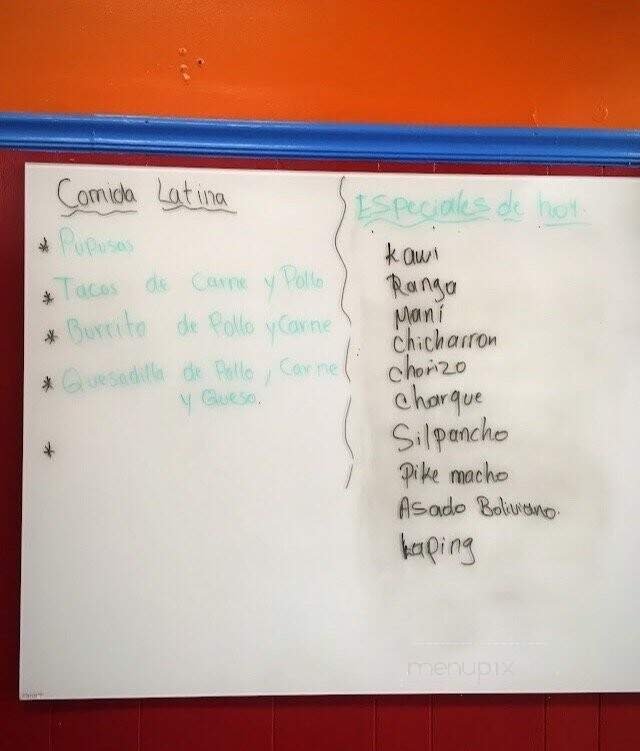 Comida Latina
* Pupusas
* Tacos de Carne y Pollo
* Burrito de Pollo y Carne
* Quesadilla de Pollo, Carne
y Queso.
*
Especiales de hoy.
Kawi
Ranga
Maní
Chicharron
Chorizo
Charque
Silpancho
Pike macho
Asado Boliviano.
Laping
menupix